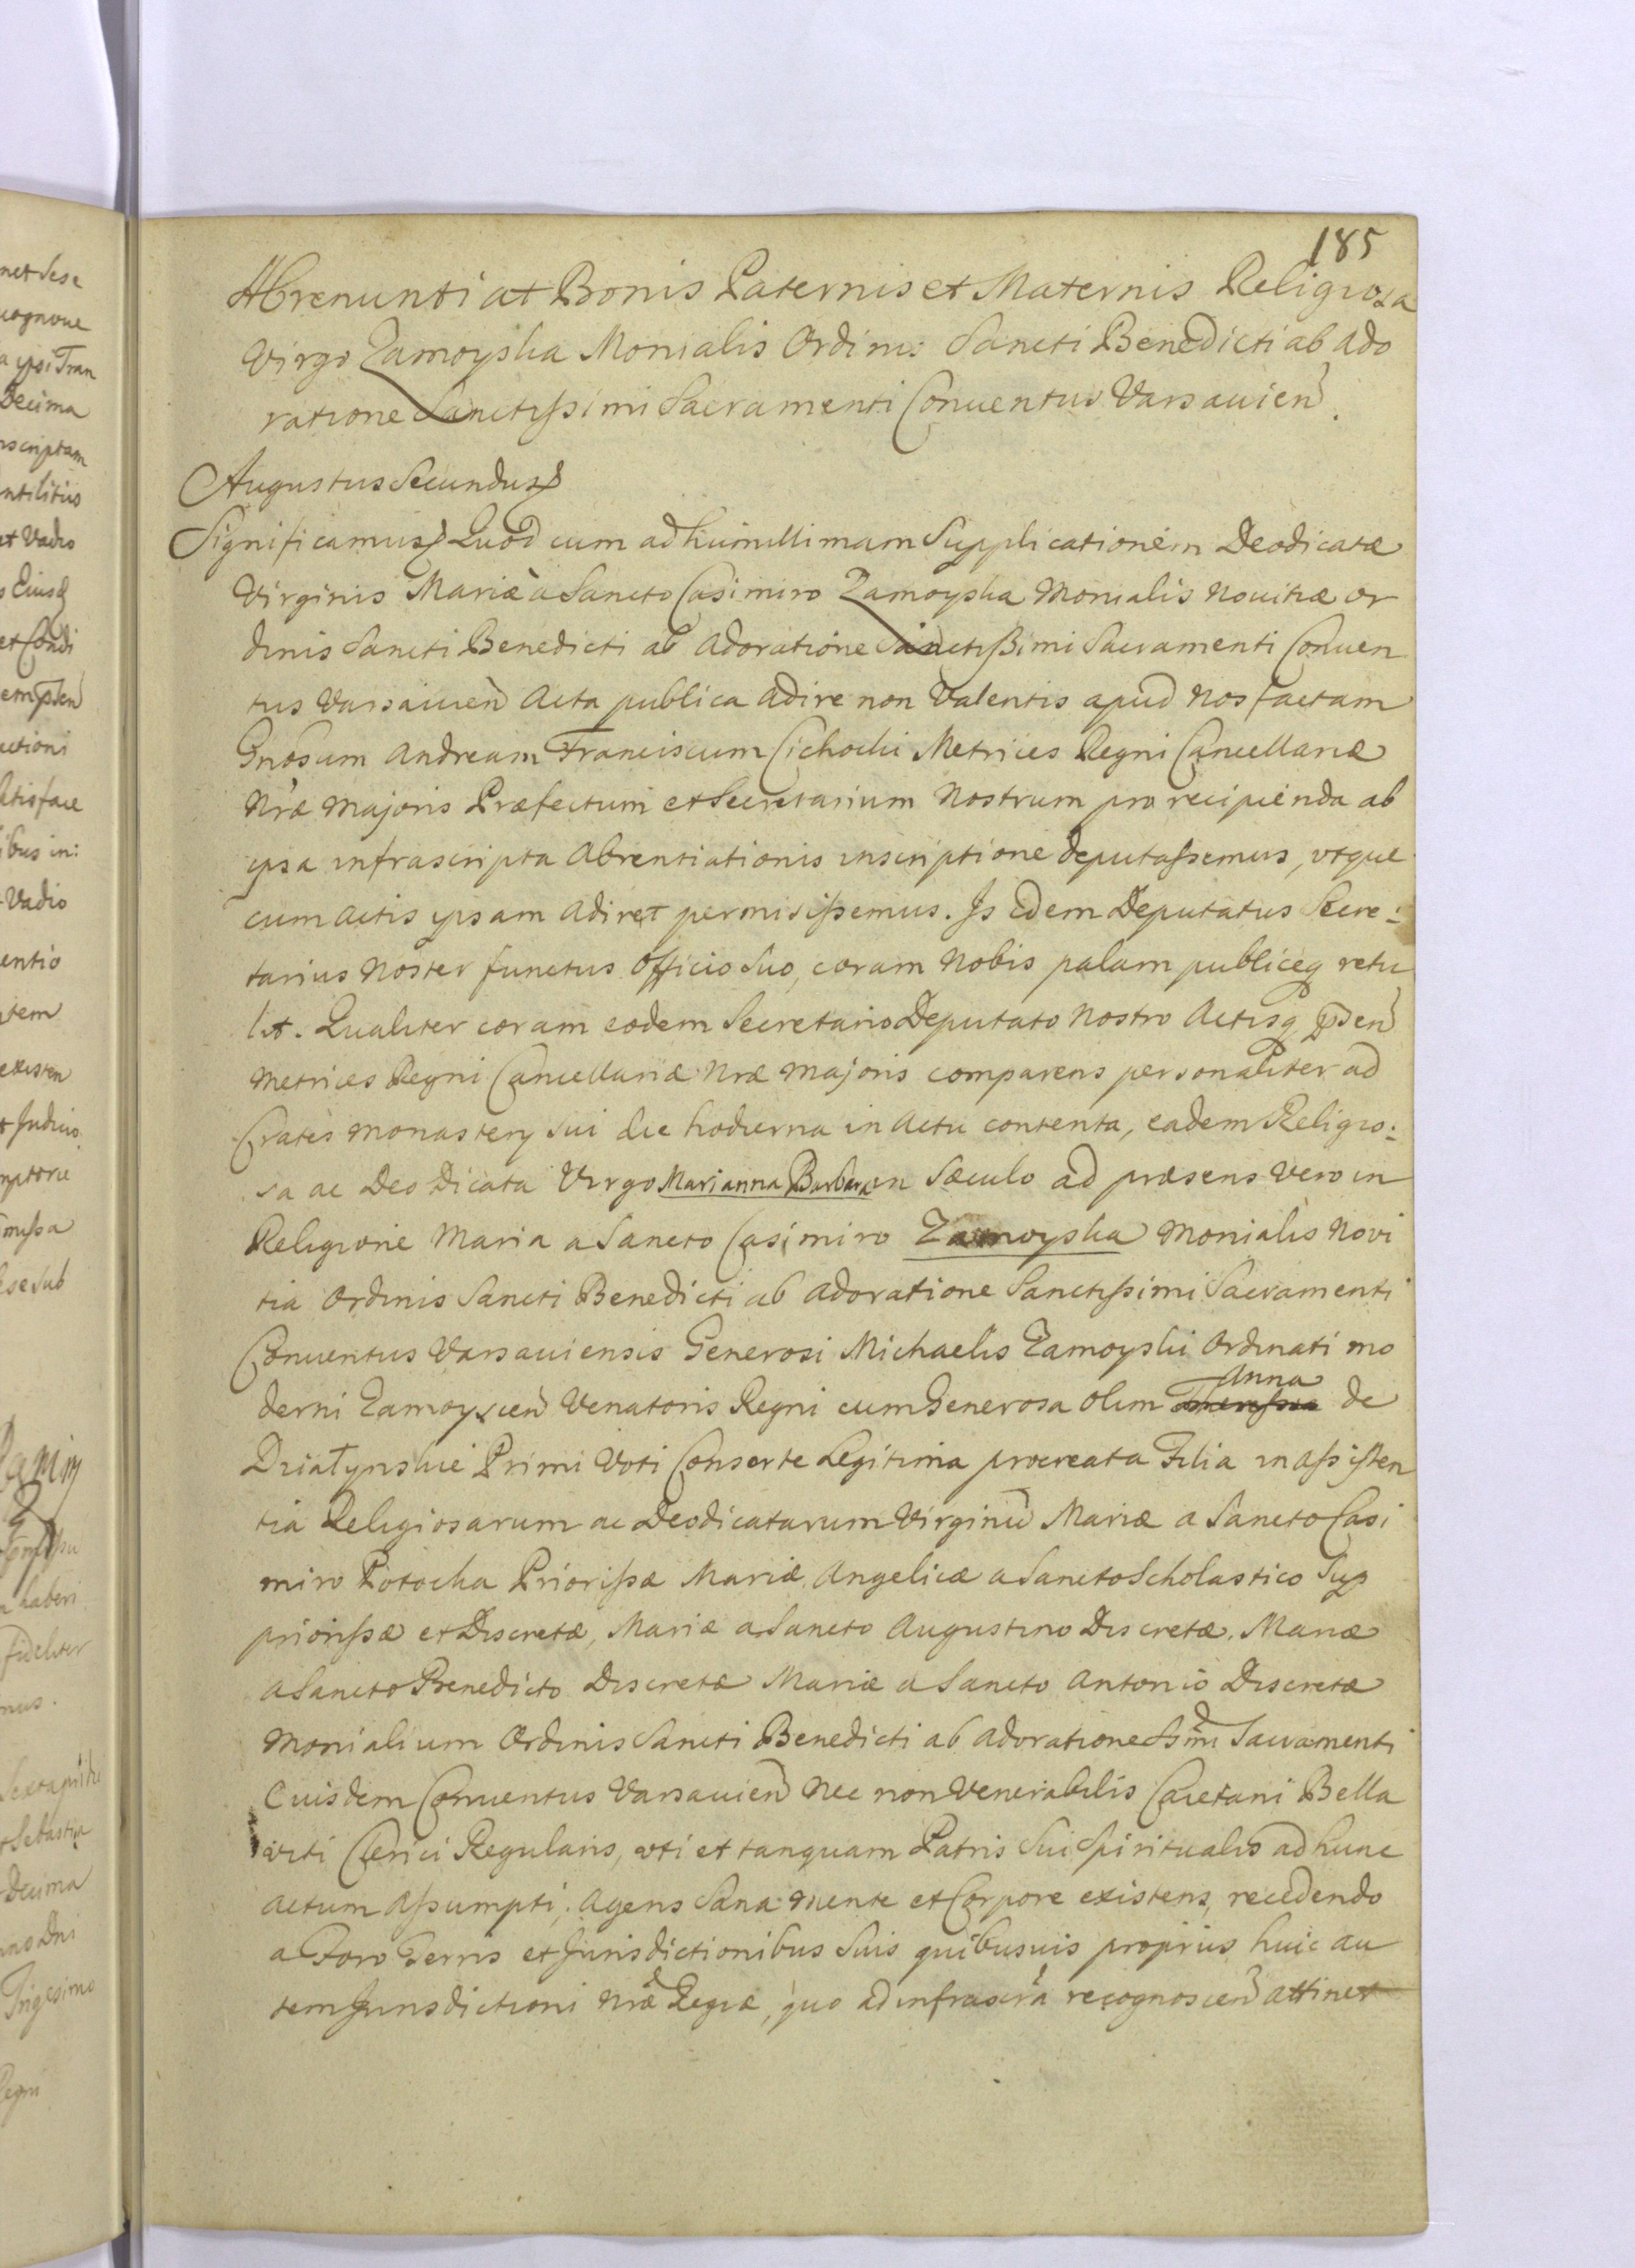 185
Abrenuntiat Bonis Paternis et Maternis Religiosa
Virgo Zamoyska Monialis Ordinis Sancti Benedicti ab ado
ratione Sanctissimi Sacramenti Conuentus Varsauien
Augustus Secundus
Significamus Quod cum ad humillimam Supplicationem Deodicatæ
Virginis Mariæ à Sancto Casimiro Zamoyska Monialis Nouitiæ or
dinis Sancti Benedicti ab Adoratione Sanctissimi Sacramenti Conuen
tus Varsauien Acta publica adire non Valentis apud Nos factam
Gnosum Andream Franciscum Cichocki Metrices Regni Cancellariæ
Nræ Majoris Præfectum et Secretarium Nostrum pro recipienda ab
ipsa infrascripta Abrentiationis inscriptione deputassemus, vtque
cum Actis ipsam adiret permisissemus. Is idem Deputatus Secre:
tarius Noster functus Officio Suo, coram Nobis palam publiceq retu
lit. Qualiter coram eodem Secretario Deputato Nostro Actisq pden
Metrices Regni Cancellariæ Nræ Majoris comparens personaliter ad
Crates Monastery Sui die hodierna in Actu contenta, eadem Religio:
sa ac Deo Dicata Virgo Marianna Barbara in Sæculo ad præsens vero in
Religione Maria a Sancto Casimiro Zamoyska Monialis Novi
tia Ordinis Sancti Benedicti ab Adoratione Sanctissimi Sacramenti
Conuentus Varsauiensis Generosi Michaelis Zamoyski Ordinati mo
derni Zamoyscien Venatoris Regni cum Generosa olim Anna de
Działynskie Primi Voti Consorte Legitima procreata Filia in assisten
tia Religiosarum ac Deodicatarum Virginu Mariæ a Sancto Casi
miro Potocka Priorissæ Mariæ Angelicæ a Sancto Scholastico Sup
priorissæ et Discretæ, Mariæ a Sancto Augustino Discretæ. Mariæ
a Sancto Benedicto Discretæ Mariæ a Sancto Antonio Discretæ
Monialium Ordinis Sancti Benedicti ab Adoratione Ssmi Sacramenti
Euisdem Conuentus Varsauien Nec non Venerabilis Caietani Bella
viti Clerici Regularis, vti et tanquam Patris Sui Spiritualis ad hunc
actum Assumpti, Agens Sana mente et Corpore existens, recedendo
a Foro Terris et Jurisdictionibus Suis quibusuis proprijs huic au
tem Jurisdictioni Nræ Regiæ, quo ad infrascra recognoscen attinet